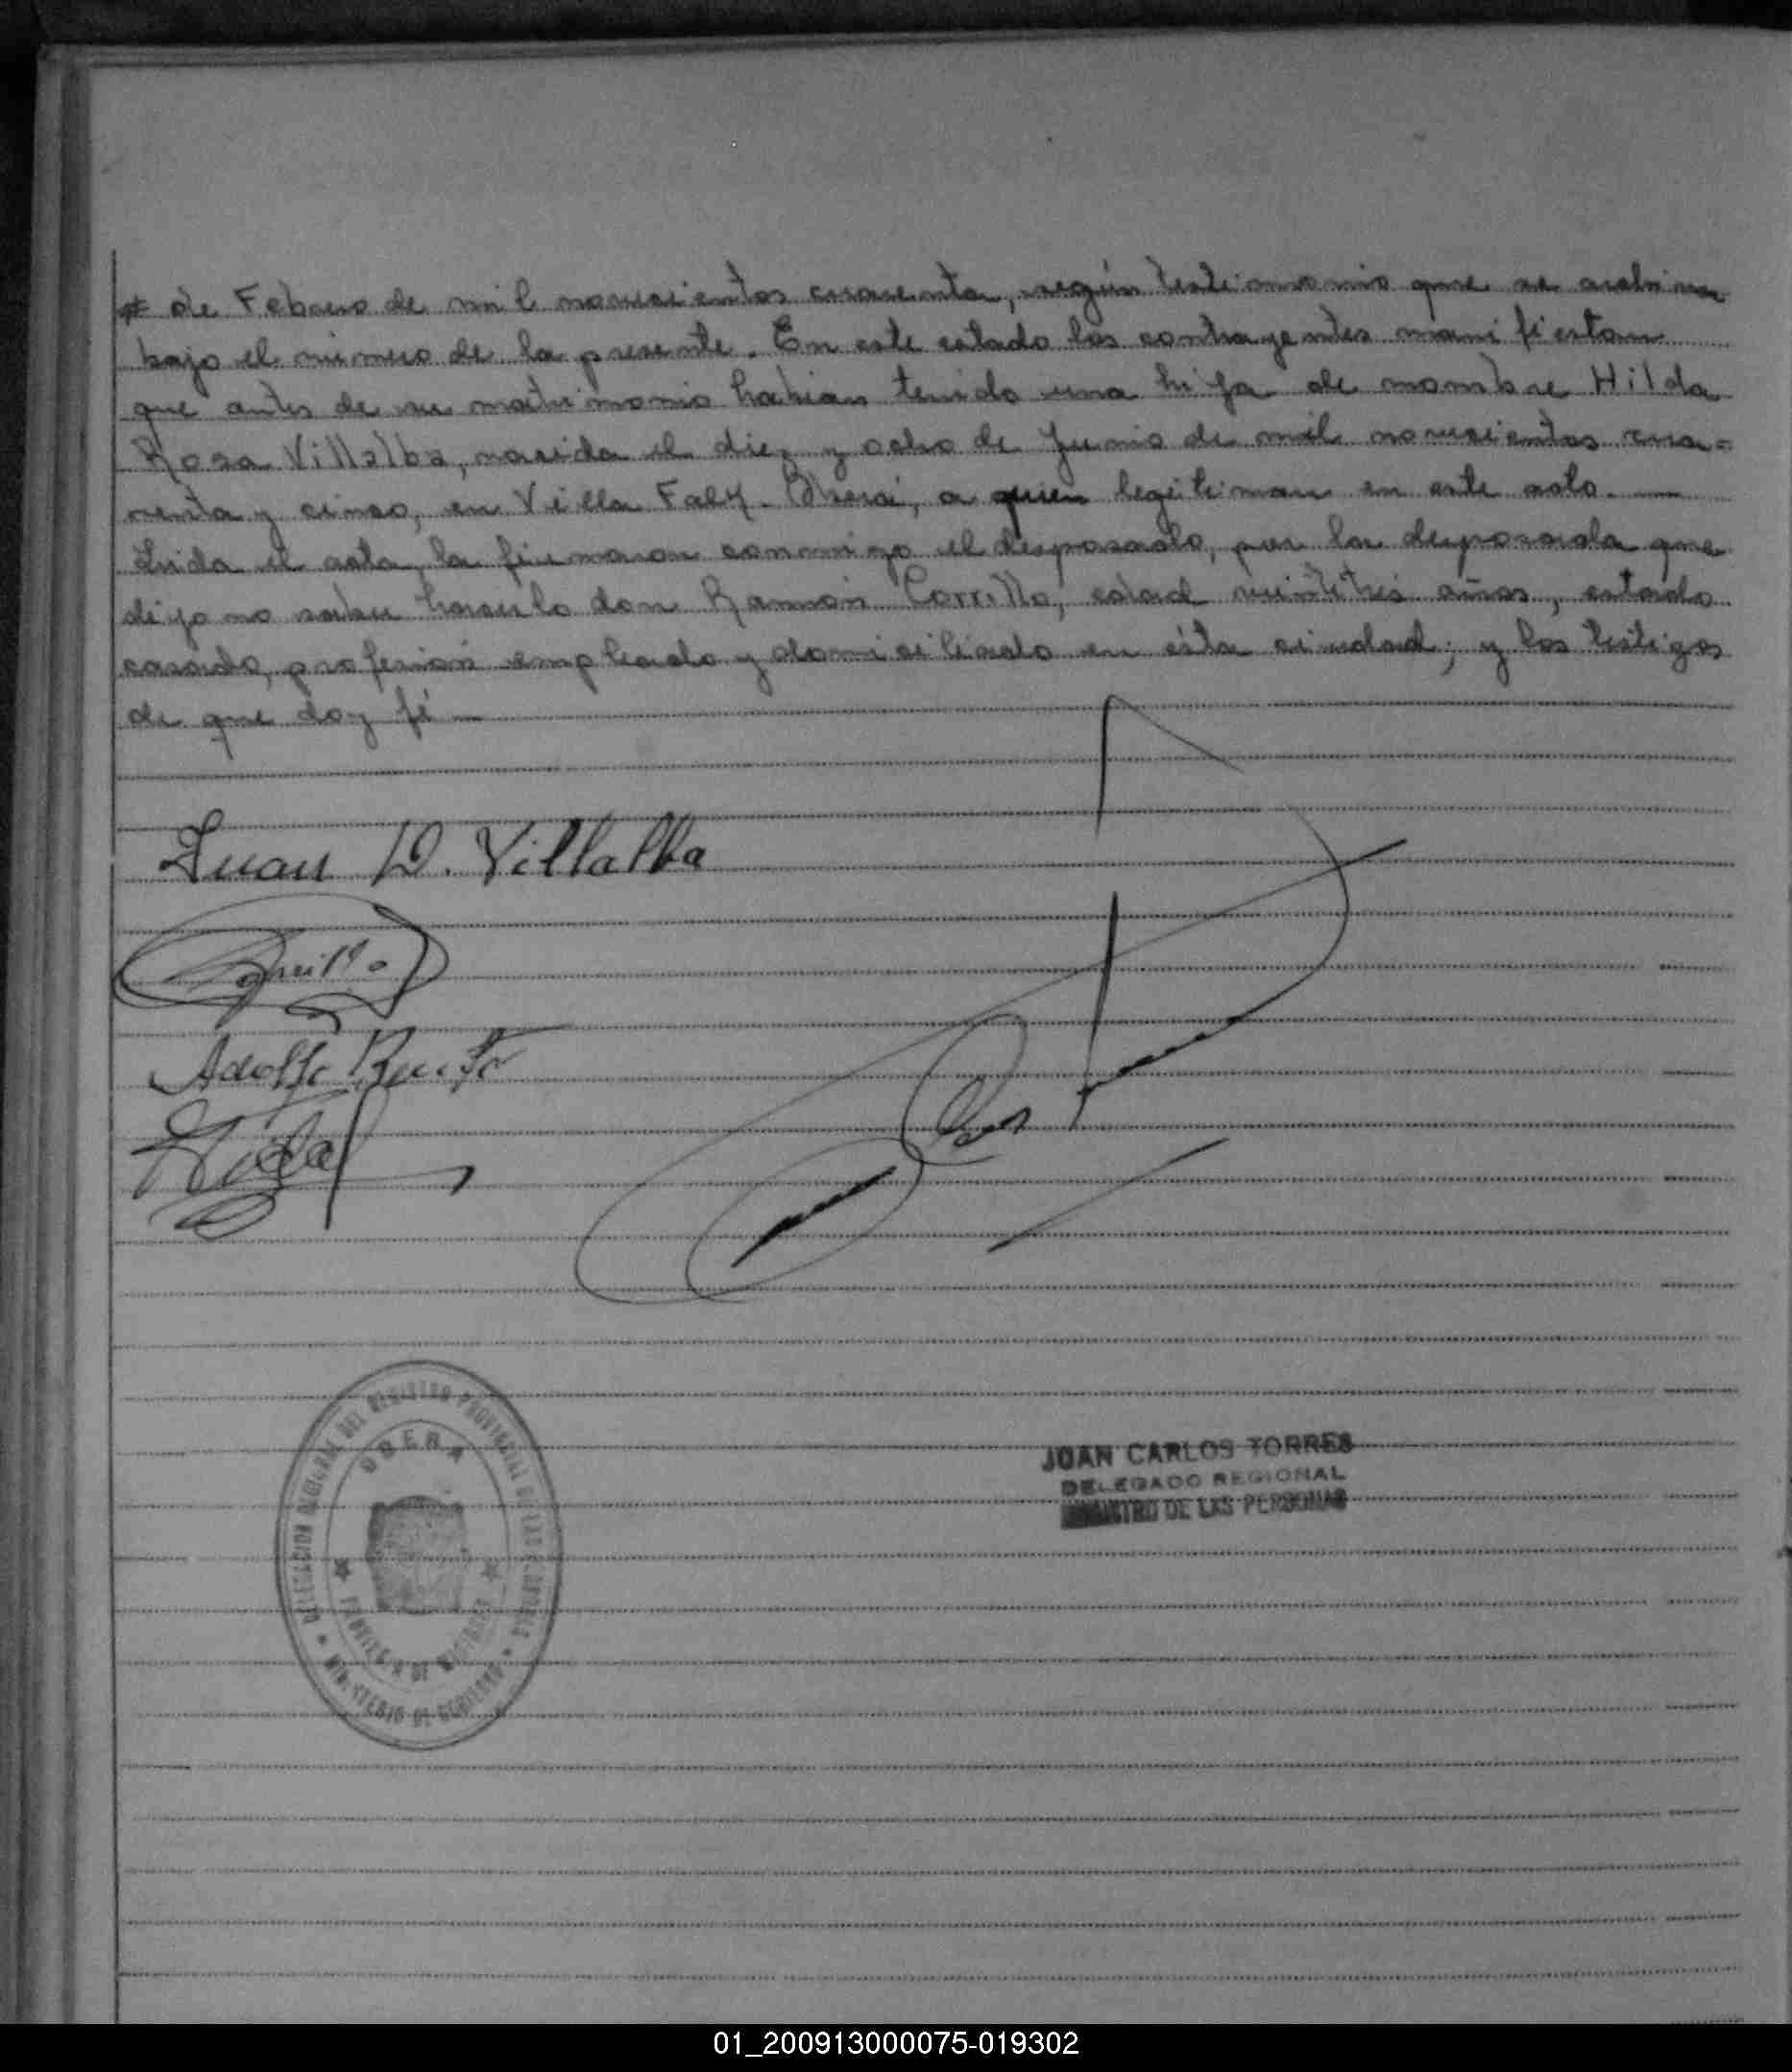 de Febrero de mil novecientos cuarenta, según testimonio que se archiva
bajo el número de la presente. En este estado los contrayentes manifiestan
que antes de su matrimonio habian tenido una hija de nombre Hilda
Rosa Villalba, nacida el diez y ocho de Junio de mil novecientos cua=
renta y cinco, en Villa Faly. Oberá, a quien legitiman en este acto.
Leida el acta, la firmaron conmigo el desposado, por la desposada que
dijo no saber hacerlo don Ramón Carrillo, edad veintitrés años, estado
casado, profesión empleado y domiciliado en ésta ciudad; y los testigos
de que doy fé
Juan D. Villalba
Carrillo
Adolfo
Vidal
DELEGACION REGIONAL DEL REGISTRO PROVINCIAL DE LAS PERSONAS
OBERA
PROVINCIA DE MISIONES
MINISTERIO DE GOBIERNO
JUAN CARLOS TORRES
DELEGADO REGIONAL
REGISTRO DE LAS PERSONAS
01_200913000075-019302